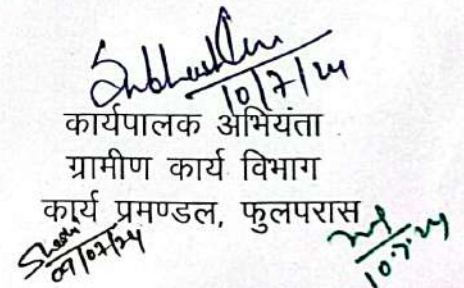 10/7/24
कार्यपालक अभियंता
ग्रामीण कार्य विभाग
कार्य प्रमण्डल, फुलपरास
09/07/24
10.7.24